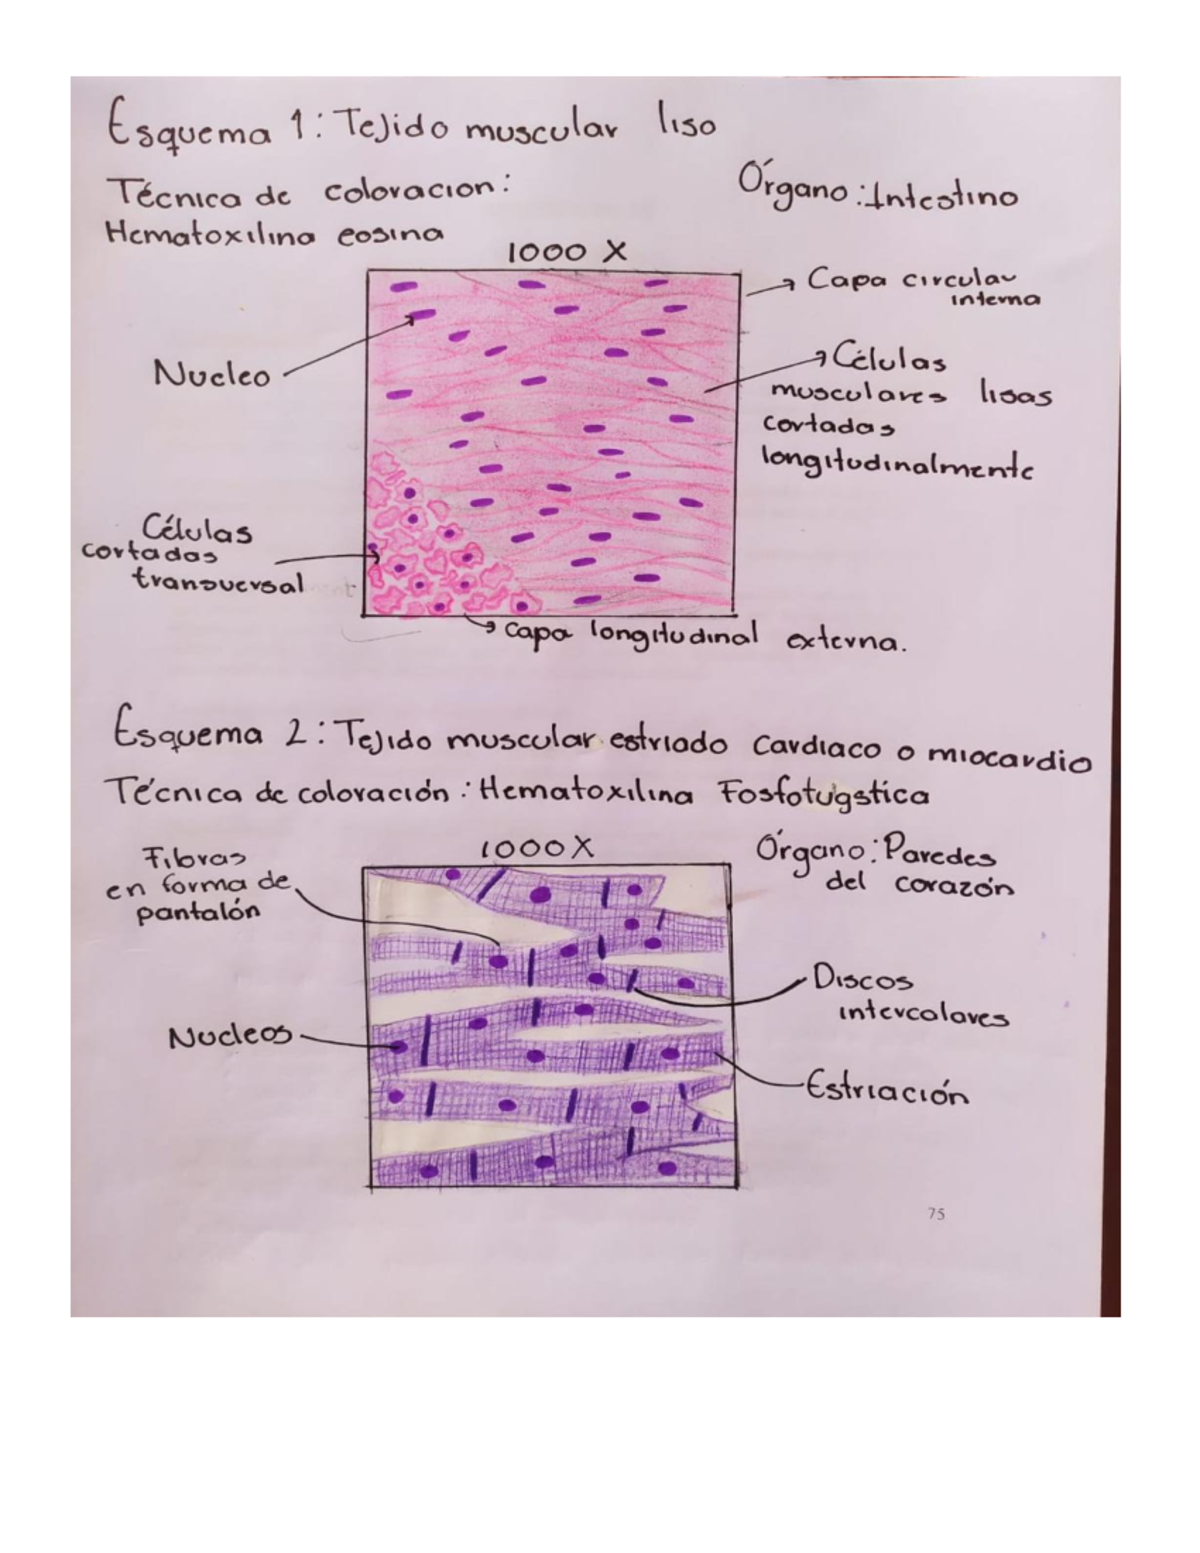 Esquema 1: Tejido muscular liso
Técnica de coloracion:
Hematoxilina eosina
Órgano: Intestino
1000 X
Capa circular
interna
Nucleo
Células
musculares lisas
cortadas
longitudinalmente
Células
cortadas
transversal
Capa longitudinal externa.
Esquema 2: Tejido muscular estriado cardiaco o miocardio
Técnica de coloración: Hematoxilina Fosfotugstica
1000X
Órgano: Paredes
del corazón
Fibras
en forma de
pantalón
Discos
intercalares
Nucleos
Estriación
75